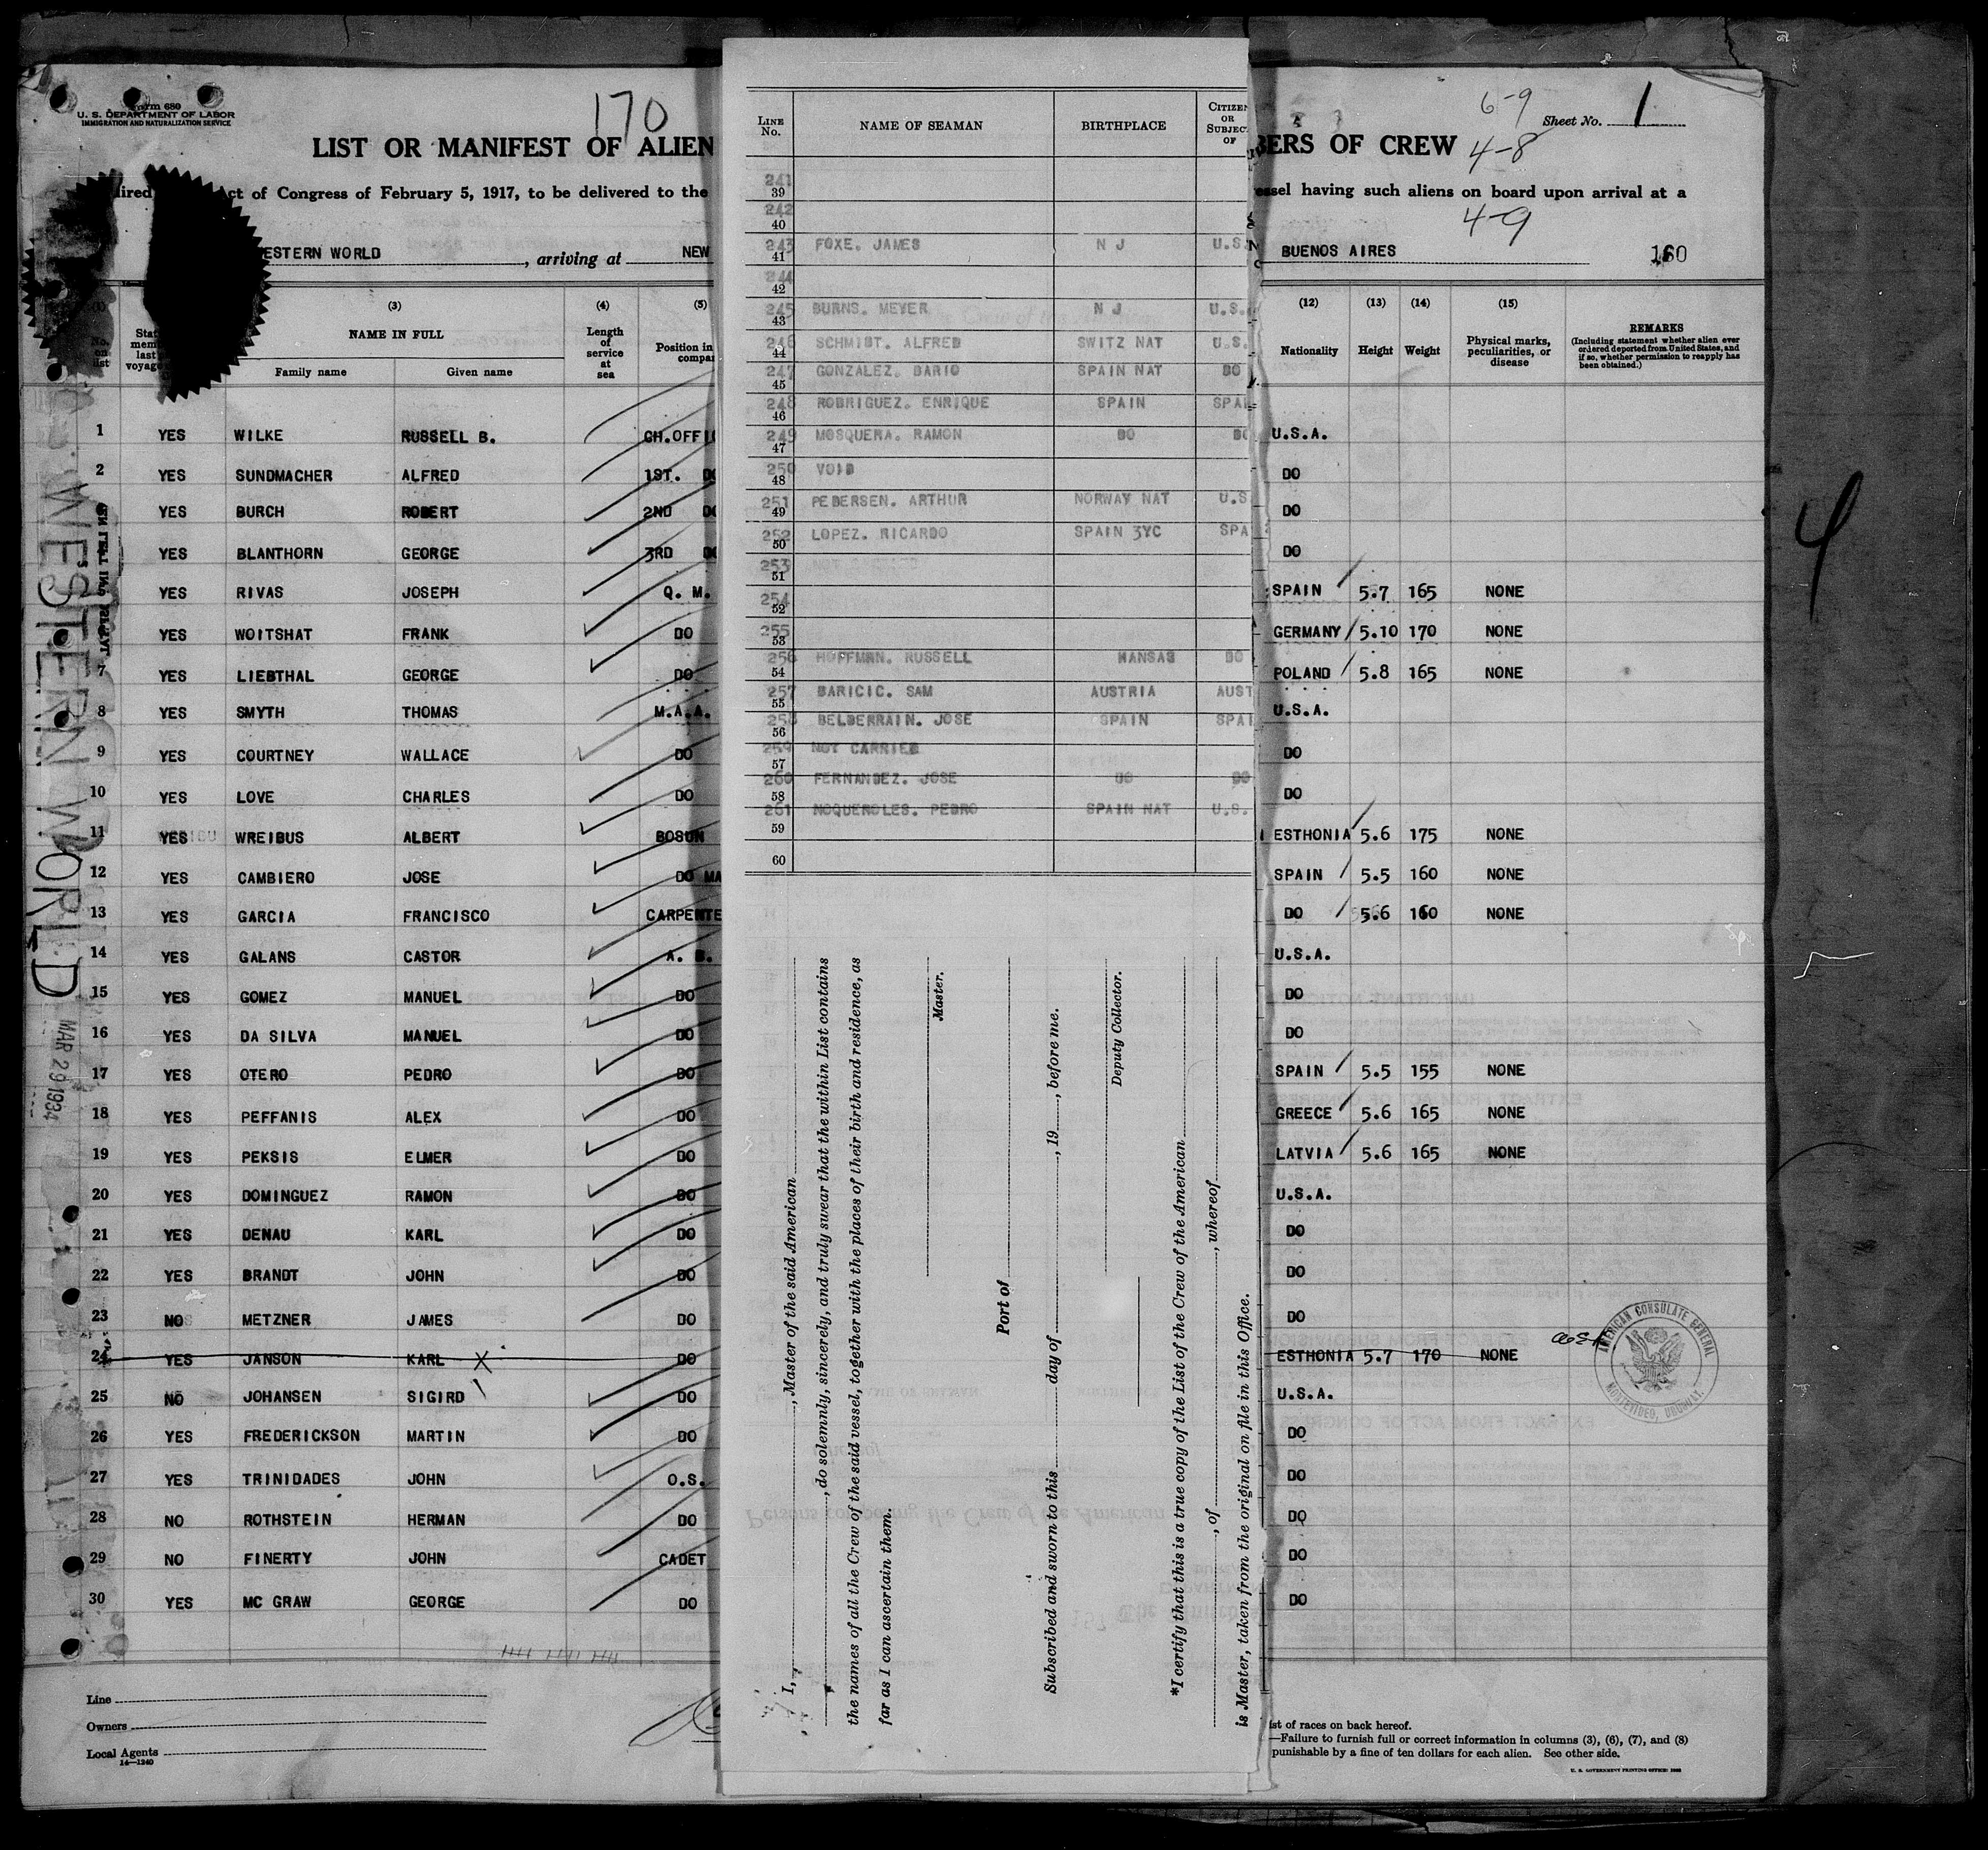 Form 680
U. S. DEPARTMENT OF LABOR
IMMIGRATION AND NATURALIZATION SERVICE
170
LIST OR MANIFEST OF ALIEN
ct of Congress of February 5, 1917, to be delivered to the
ESTERN WORLD , arriving at NEW
(3) (4) (5)
No. on list
NAME IN FULL
Family name Given name
Length of service at sea
Position in
1 YES WILKE RUSSELL B. CH.OFFI
2 YES SUNDMACHER ALFRED 1ST. DO
YES BURCH ROBERT 2ND DO
YES BLANTHORN GEORGE 3RD DO
YES RIVAS JOSEPH Q. M.
YES WOITSHAT FRANK DO
7 YES LIEBTHAL GEORGE DO
8 YES SMYTH THOMAS M.A.A.
9 YES COURTNEY WALLACE DO
10 YES LOVE CHARLES DO
11 YES WREIBUS ALBERT BOSUN
12 YES CAMBIERO JOSE DO MA
13 YES GARCIA FRANCISCO CARPENTE
14 YES GALANS CASTOR A. B.
15 YES GOMEZ MANUEL DO
16 YES DA SILVA MANUEL DO
17 YES OTERO PEDRO DO
18 YES PEFFANIS ALEX DO
19 YES PEKSIS ELMER DO
20 YES DOMINGUEZ RAMON DO
21 YES DENAU KARL DO
22 YES BRANDT JOHN DO
23 NO METZNER JAMES DO
24 YES JANSON KARL X DO
25 NO JOHANSEN SIGIRD DO
26 YES FREDERICKSON MARTIN DO
27 YES TRINIDADES JOHN O.S.
28 NO ROTHSTEIN HERMAN DO
29 NO FINERTY JOHN CADET
30 YES MC GRAW GEORGE DO
Line
Owners
Local Agents
14—1240
WESTERN WORLD
MAR 29 1934
LINE No. NAME OF SEAMAN BIRTHPLACE CITIZEN OR SUBJECT OF
241 39
242 40
243 41 FOXE. JAMES N J U.S.
244 42
245 43 BURNS. MEYER N J U.S.
246 44 SCHMIDT. ALFRED SWITZ NAT U.S.
247 45 GONZALEZ. DARIO SPAIN NAT DO
248 46 RODRIGUEZ. ENRIQUE SPAIN SPAI
249 47 MOSQUERA. RAMON DO DO
250 48 VOID
251 49 PEDERSEN. ARTHUR NORWAY NAT U.S
252 50 LOPEZ. RICARDO SPAIN 3YC SPA
253 51
254 52
255 53
256 54 HOFFMAN. RUSSELL KANSAS DO
257 55 BARICIC. SAM AUSTRIA AUST
258 56 BELDERRAIN. JOSE SPAIN SPAI
259 57 NOT CARRIED
260 58 FERNANDEZ. JOSE DO DO
261 59 NOQUEROLES. PEDRO SPAIN NAT U.S.
60
I, , Master of the said American
, do solemnly, sincerely, and truly swear that the within List contains
the names of all the Crew of the said vessel, together with the places of their birth and residence, as
far as I can ascertain them.
Master.
Port of
Subscribed and sworn to this day of , 19 , before me.
Deputy Collector.
*I certify that this is a true copy of the List of the Crew of the American
, of , whereof
is Master, taken from the original on file in this Office.
6-9
Sheet No. 1
BERS OF CREW 4-8
essel having such aliens on board upon arrival at a
4-9
BUENOS AIRES 160
(12) (13) (14) (15)
Nationality Height Weight
Physical marks, peculiarities, or disease
REMARKS
(Including statement whether alien ever ordered deported from United States, and if so, whether permission to reapply has been obtained.)
U.S.A.
DO
DO
DO
SPAIN 5.7 165 NONE
GERMANY 5.10 170 NONE
POLAND 5.8 165 NONE
U.S.A.
DO
DO
ESTHONIA 5.6 175 NONE
SPAIN 5.5 160 NONE
DO 5.6 160 NONE
U.S.A.
DO
DO
SPAIN 5.5 155 NONE
GREECE 5.6 165 NONE
LATVIA 5.6 165 NONE
U.S.A.
DO
DO
DO
ESTHONIA 5.7 170 NONE
U.S.A.
DO
DO
DO
DO
DO
AMERICAN CONSULATE GENERAL
MONTEVIDEO, URUGUAY.
ist of races on back hereof.
—Failure to furnish full or correct information in columns (3), (6), (7), and (8)
punishable by a fine of ten dollars for each alien. See other side.
U. S. GOVERNMENT PRINTING OFFICE:
4